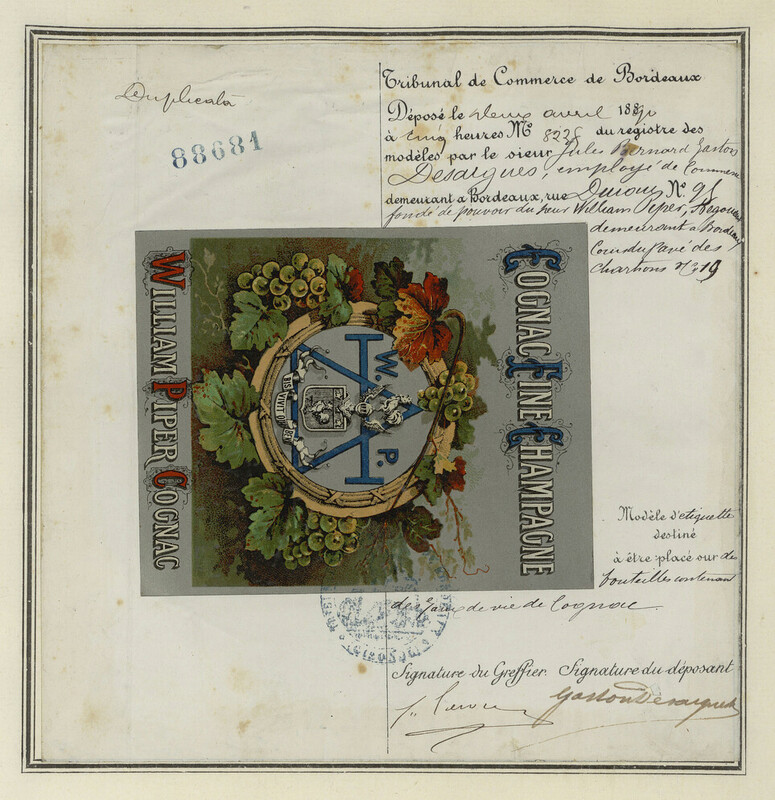 Duplicata
88681
Tribunal de Commerce de Bordeaux
Déposé le deux avril 1890
à cinq heures No 8228 du registre des
modèles par le sieur Jules Bernard Gaston
Desaigues, employé de Commerce
demeurant à Bordeaux, rue No 95
fondé de pouvoir du sieur William Piper, Négociant
demeurant à Bordeaux
Cours du Pavé des
Chartrons No 19
COGNAC FINE CHAMPAGNE
W.
P.
BIS VIVIT QUI BENE
WILLIAM PIPER COGNAC
Modèle d'etiquette
destiné
à être placé sur des
bouteilles contenant
des eaux de vie de Cognac
Signature du Greffier. Signature du déposant
Gaston Desaigues